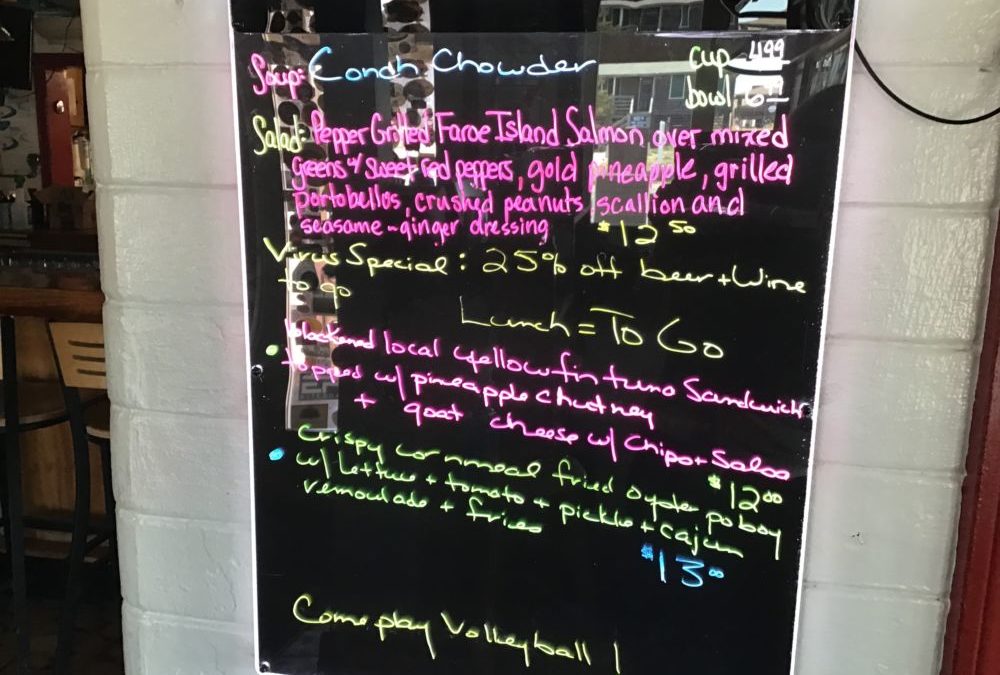 Soup: Conch Chowder cup 4.99
bowl 6.99
Salad: Pepper Grilled Faroe Island Salmon over mixed
greens w/ sweet red peppers, gold pineapple, grilled
portobellos, crushed peanuts scallion and
seasame-ginger dressing $12 50
Virus Special: 25% off beer + Wine
to go
Lunch = To Go
blackened local yellowfin tuna Sandwich
topped w/ pineapple chutney
+ goat cheese w/ Chips + Salsa
$12 00
Crispy cornmeal fried oyster po boy
w/ lettuce + tomato + pickle + cajun
remoulade + fries
$13 00
Come play Volleyball !